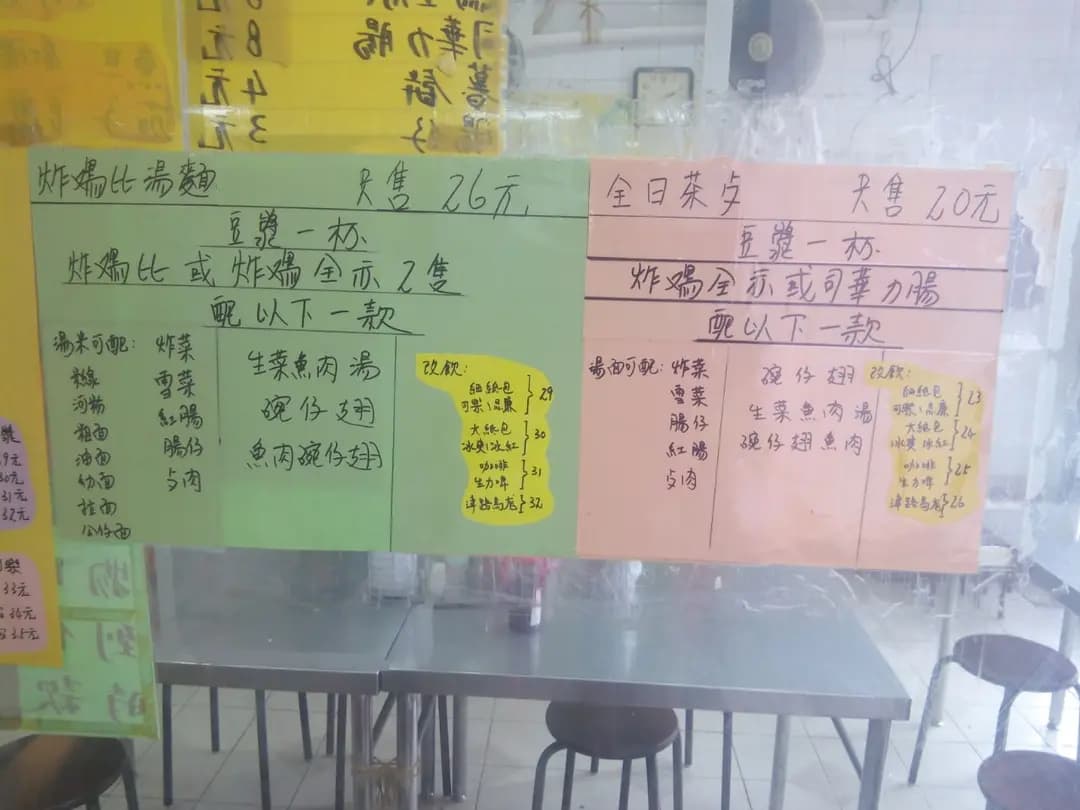 司華力腸 8元
薯餅 4元
腸仔 3元
炸鷄比湯麵 只售 26元
豆漿一杯
炸鷄比或炸鷄全亦2隻
配以下一款
湯米可配: 炸菜
米線 雪菜
河粉 紅腸
粗面 腸仔
油面 歺肉
幼面
拉面
公仔面
生菜魚肉湯
碗仔翅
魚肉碗仔翅
改飲:
細紙包
可樂,忌廉 } 29
大紙包
冰爽,冰紅 } 30
咖啡
生力啤 } 31
} 32
全日茶歺 只售 20元
豆漿一杯
炸鷄全亦或司華力腸
配以下一款
湯面可配: 炸菜
雪菜
腸仔
紅腸
歺肉
碗仔翅
生菜魚肉湯
碗仔翅魚肉
改飲:
細紙包
可樂,忌廉 } 23
大紙包
冰爽,冰紅 } 24
咖啡
生力啤 } 25
} 26
31元
32元
33元
34元
35元